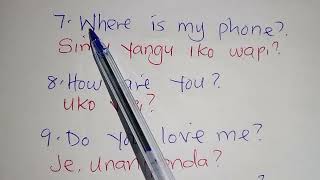 7. Where is my phone?
Simu yangu iko wapi?
8. How are you?
UKo
9. Do you love me?
Je,